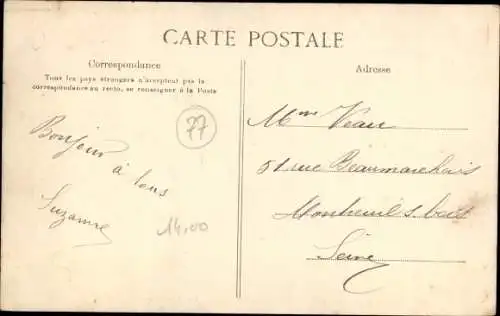 CARTE POSTALE
Correspondance
Tous les pays étrangers n'acceptent pas la
correspondance au recto, se renseigner à la Poste
Adresse
77
Bonjour
à tous
Suzanne
14,00
Mme Veau
51 rue Beaumarchais
Montreuil s. bois
Seine